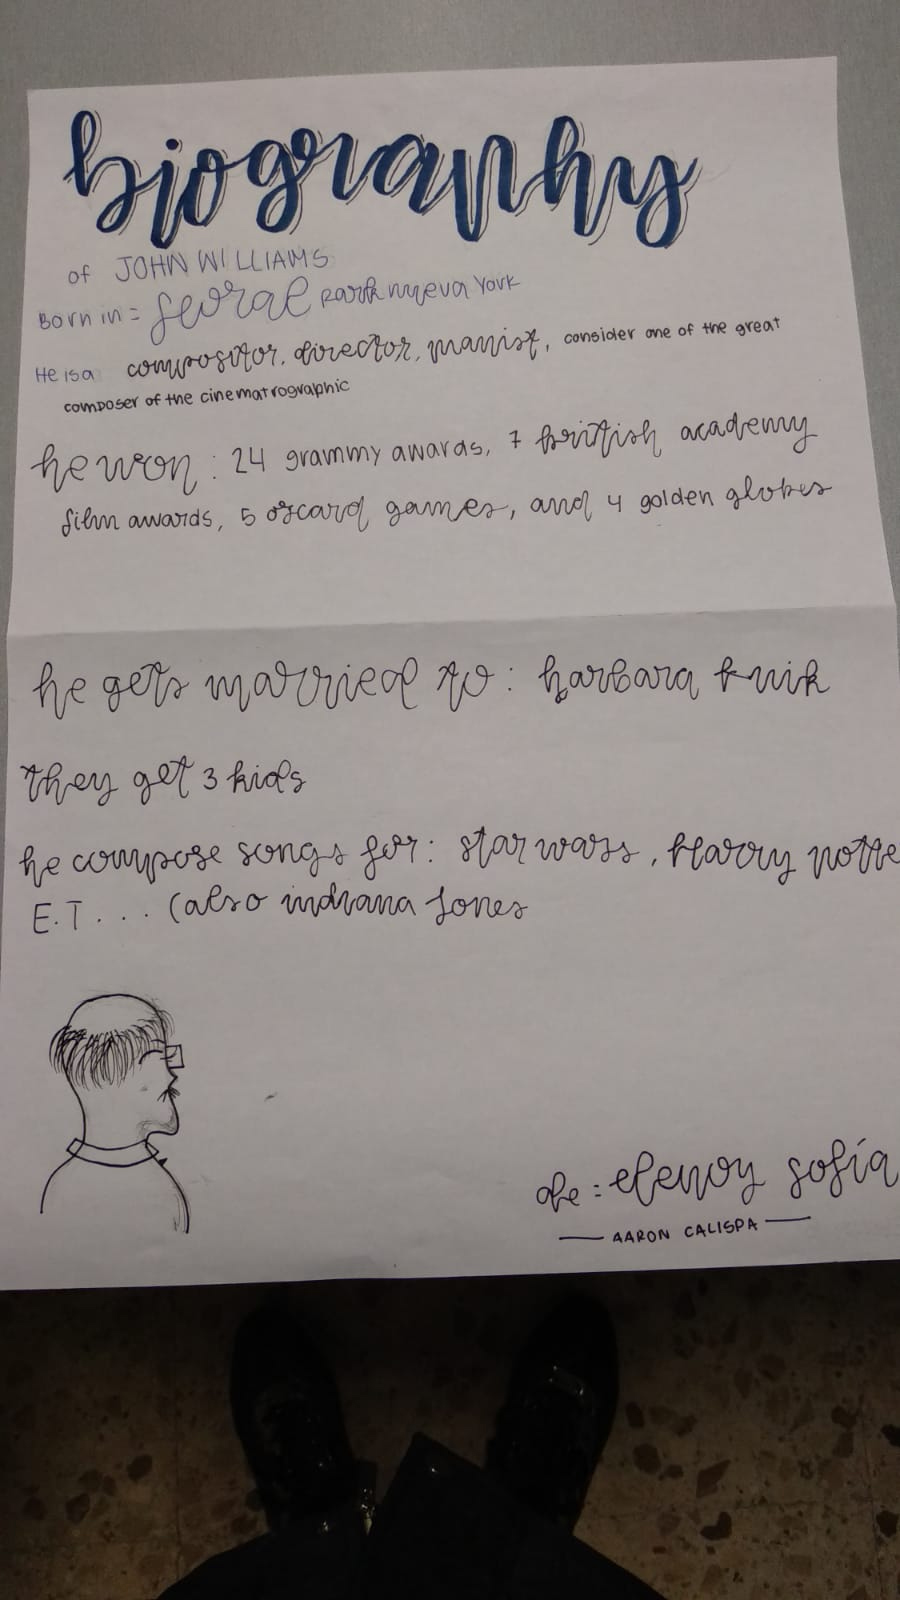 biography
of JOHN WILLIAMS
Born in = George Park nueva York
He is a compositor, director, pianist, consider one of the great
composer of the cinematrographic
he won : 24 grammy awards, 7 british academy
film awards, 5 oscard games, and 4 golden globes
he gets married to : barbara
they get 3 kids
he compose songs for : star wars, Harry potte
E.T . . . (also indiana Jones
de : elenoy sofía
AARON CALISPA